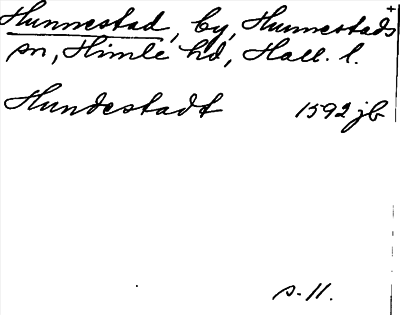 Hunnestad, by, Hunnestads
sn, Himle hd, Hall. l.
Hundestadt 1592 jb
s. 11.